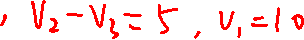 , V₂-V₃=5, V₁=10